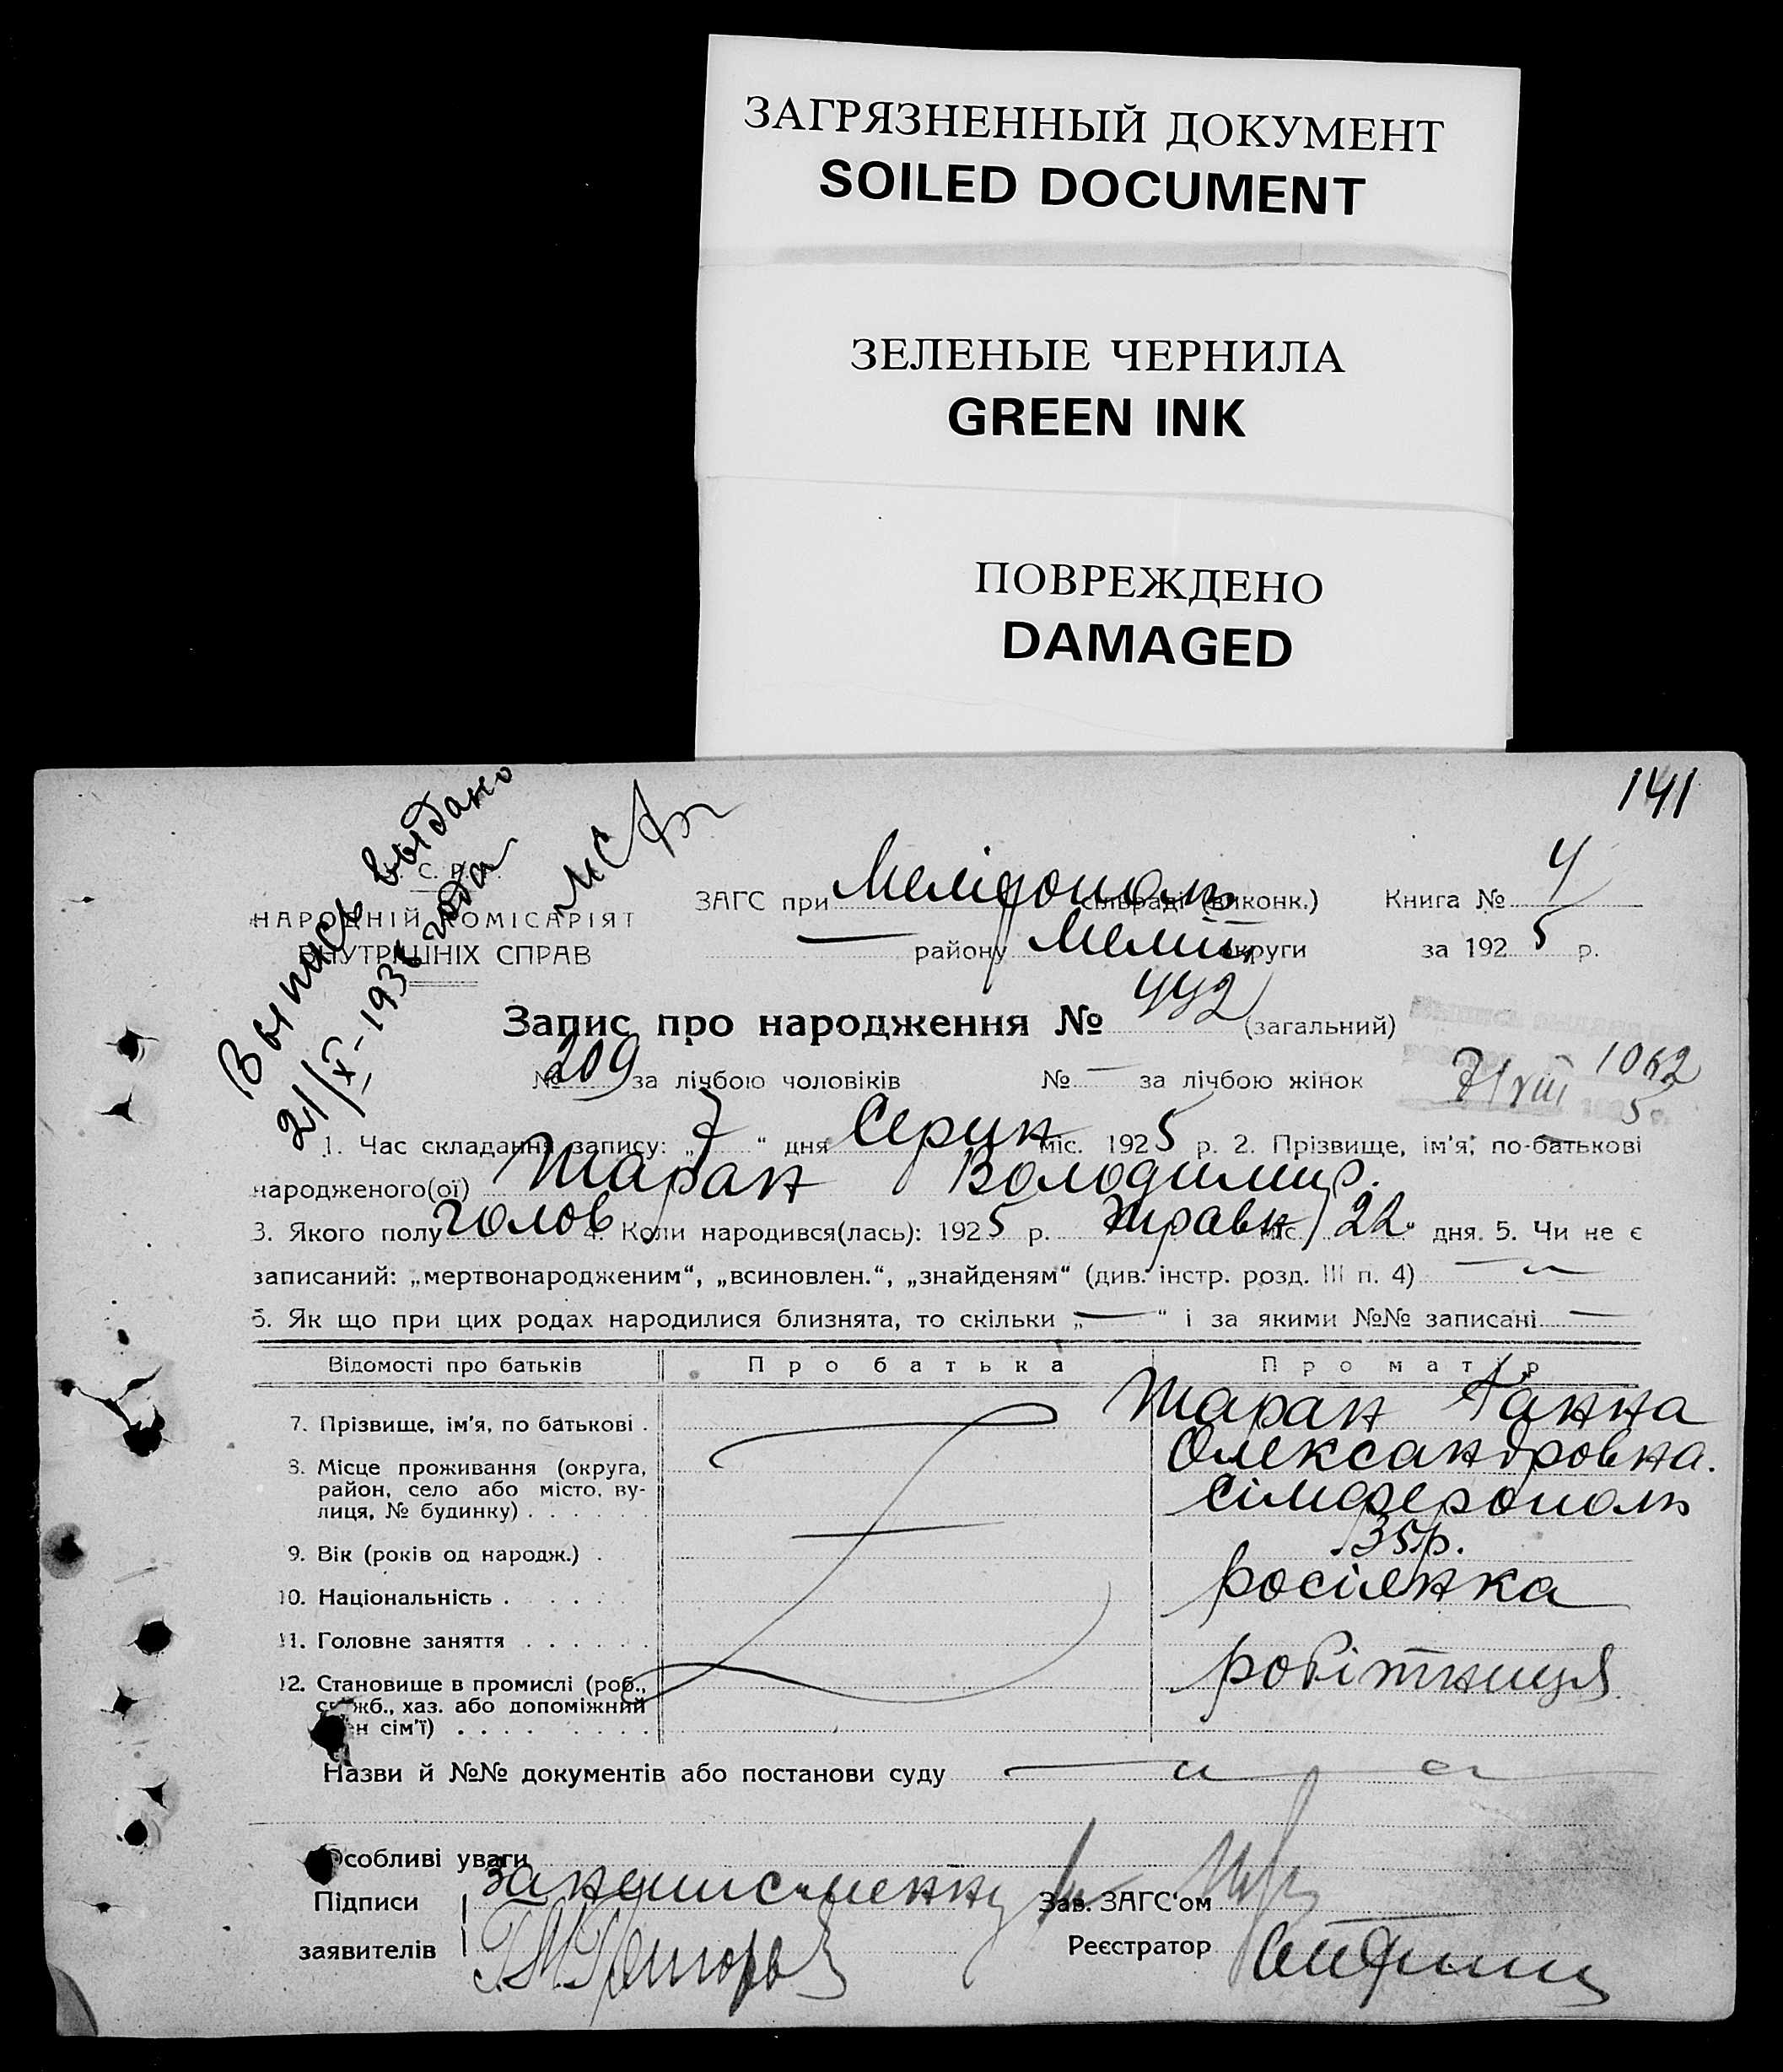 ЗАГРЯЗНЕННЫЙ ДОКУМЕНТ
SOILED DOCUMENT
ЗЕЛЕНЫЕ ЧЕРНИЛА
GREEN INK
ПОВРЕЖДЕНО
DAMAGED
141
Выпись выдано
21/XI-1936 года
НАРОДНІЙ КОМІСАРІЯТ
ВНУТРІШНІХ СПРАВ
ЗАГС при Мелітополь сільраді (виконк.) Книга № 4
— району Меліт округи за 1925 р.
Запис про народження № 442 (загальний)
№ 209 за лічбою чоловіків № — за лічбою жінок
7/VIII 1062
5
1. Час складання запису: „7“ дня Серпн міс. 1925 р. 2. Прізвище, ім'я, по-батькові
народженого(ої) Таран Володимир.
3. Якого полу голов 4. Коли народився(лась): 1925 р. Травн міс. 22 дня. 5. Чи не є
записаний: „мертвонародженим“, „всиновлен.“, „знайденям“ (див. інстр. розд. III п. 4) — „
6. Як що при цих родах народилися близнята, то скільки „—“ і за якими №№ записані —
Відомості про батьків Про батька Про матір
7. Прізвище, ім'я, по батькові . Таран Ганна
Олександровна.
8. Місце проживання (округа,
район, село або місто, ву-
лиця, № будинку) . . . . . . Сімферополь
9. Вік (років од народж.) . 35 р.
10. Національність . . . . . росіянка
11. Головне заняття . . . . . .
12. Становище в промислі (роб., робітниця
служб., хаз. або допоміжний
член сім'ї) . . . . . . . .
Назви й №№ документів або постанови суду — „ „
Особливі уваги
Підписи
Зав. ЗАГС'ом
заявителів
Реєстратор